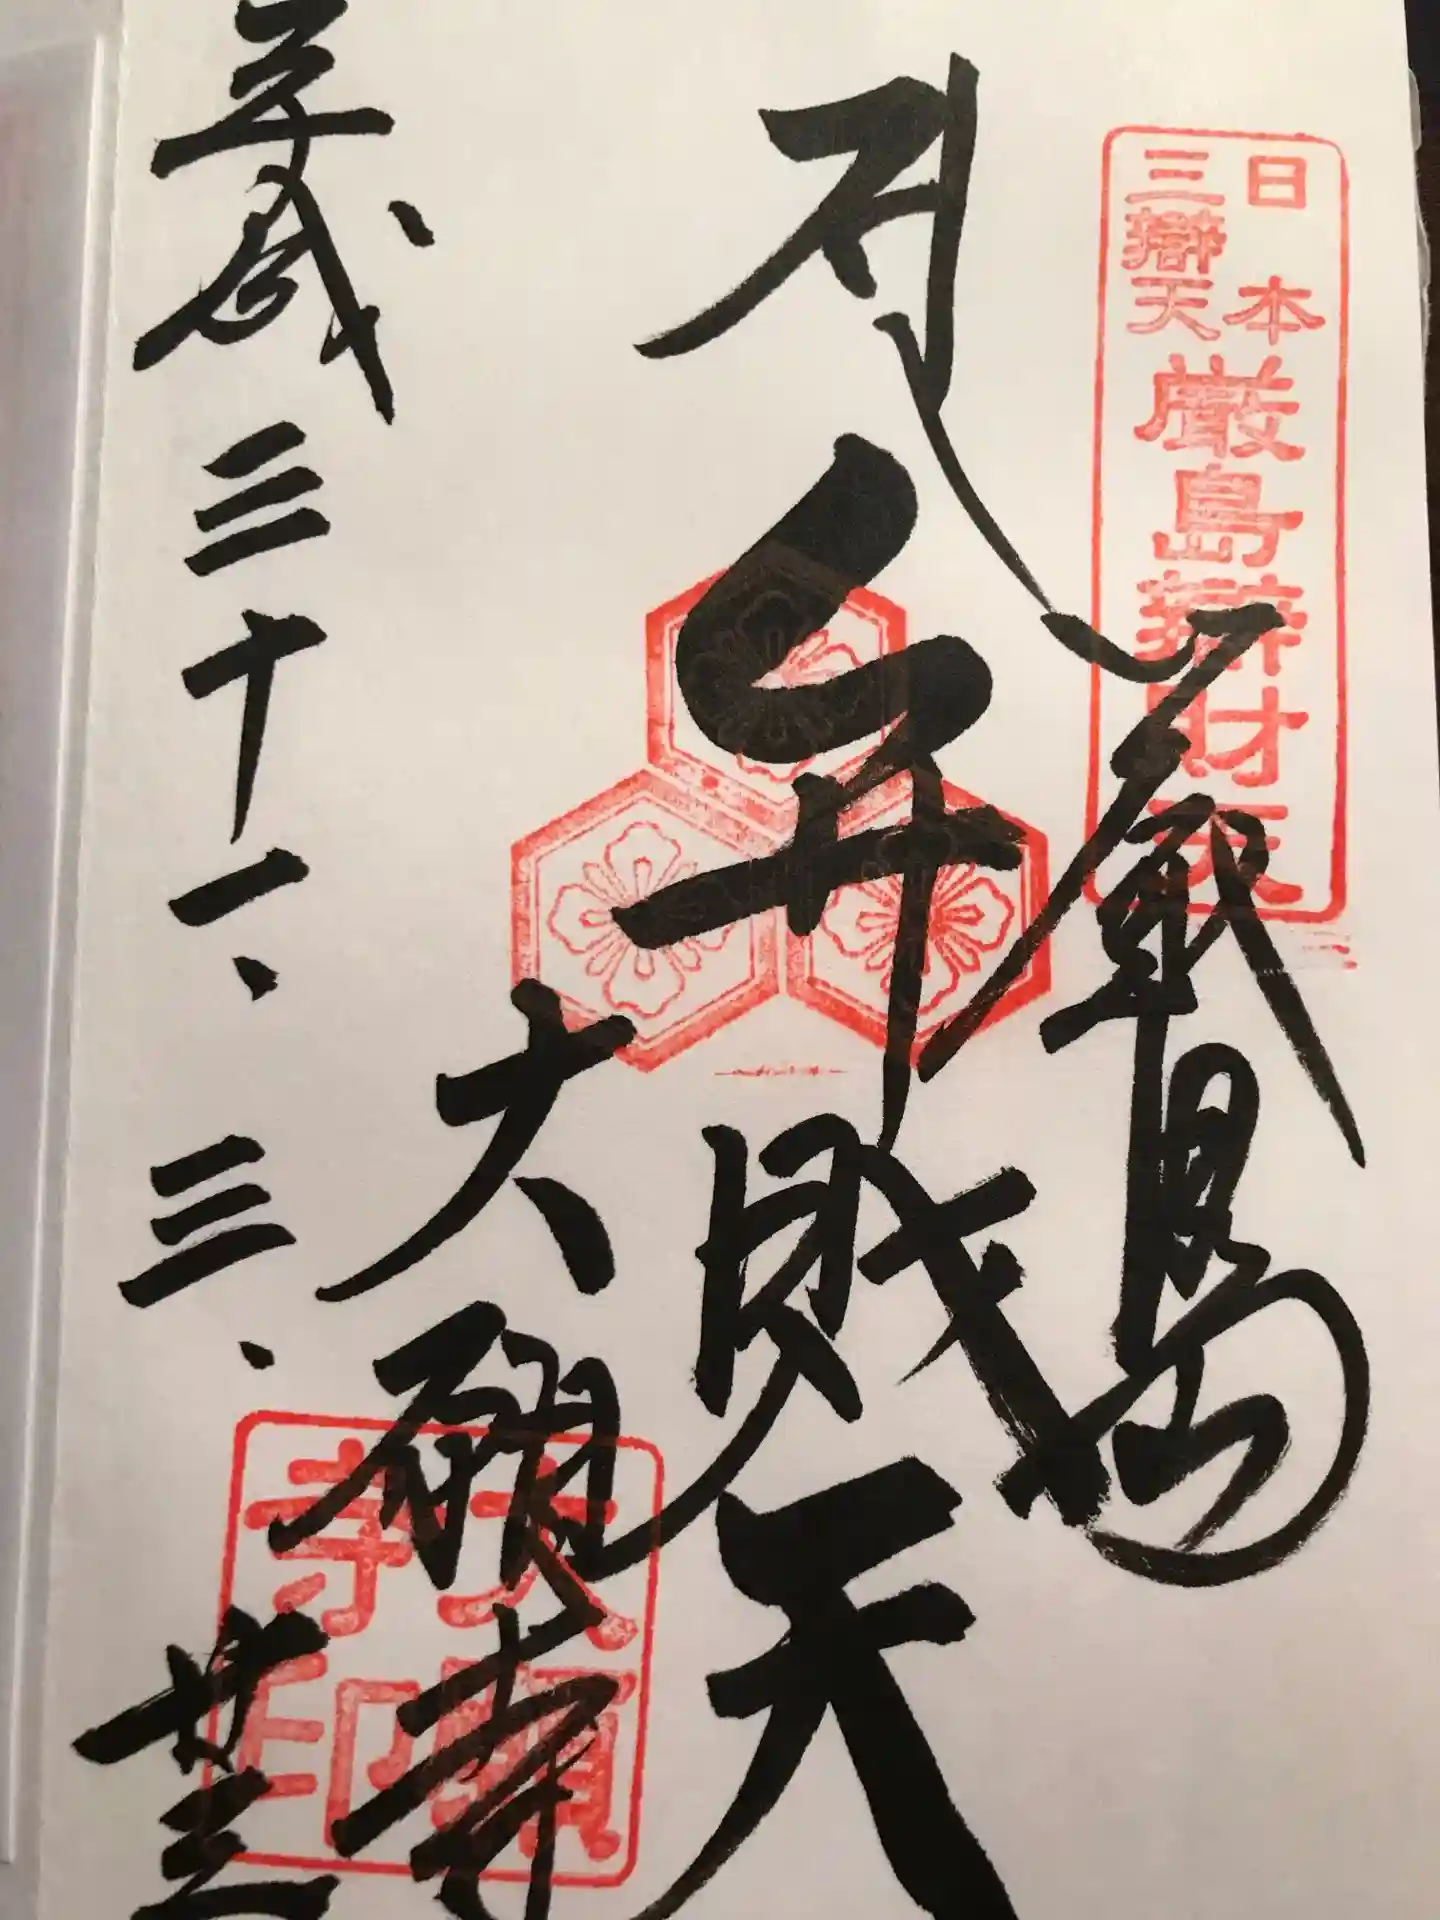 日本
三辯天
厳島辯財天
厳島
弁財天
大願寺
大願
寺印
平成三十一、三、廿三